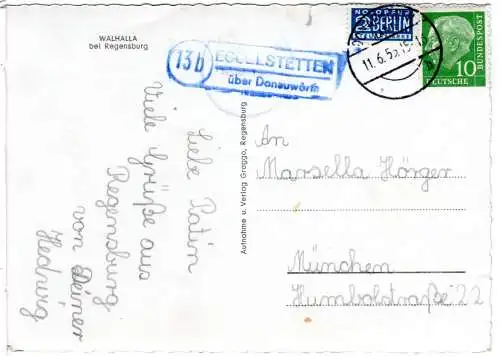 WALHALLA
bei Regensburg
13b
EGELSTETTEN
über Donauwörth
NOTOPFER
2 BERLIN
STEUERMARKE
11.6.55.15
DEUTSCHE
BUNDESPOST
10
Liebe Patin
Viele Grüße aus
Regensburg
von Deiner
Hedwig
Aufnahme u. Verlag Groggo, Regensburg
An
Marsella Hörger
München
Humboldstraße 22